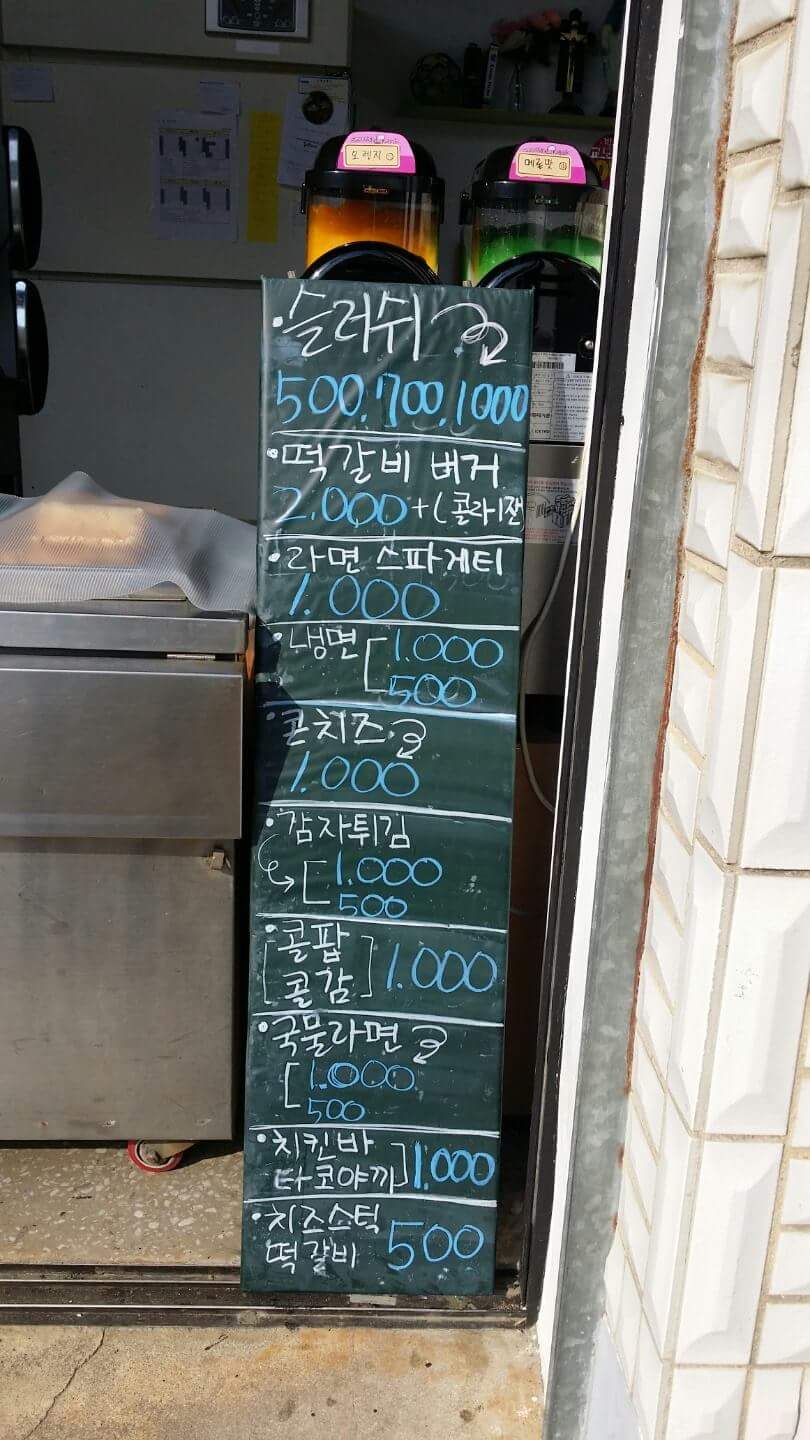 오렌지
메론맛
·슬러쉬
500, 700, 1000
·떡갈비 버거
2.000 + (콜라1잔
·라면 스파게티
1.000
·냉면 [1.000
500
·콘치즈
1.000
·감자튀김
[1.000
500
·[콜팝
콜감] 1.000
·국물라면
[1.000
500
·치킨바
타코야끼] 1.000
·치즈스틱
떡갈비 500